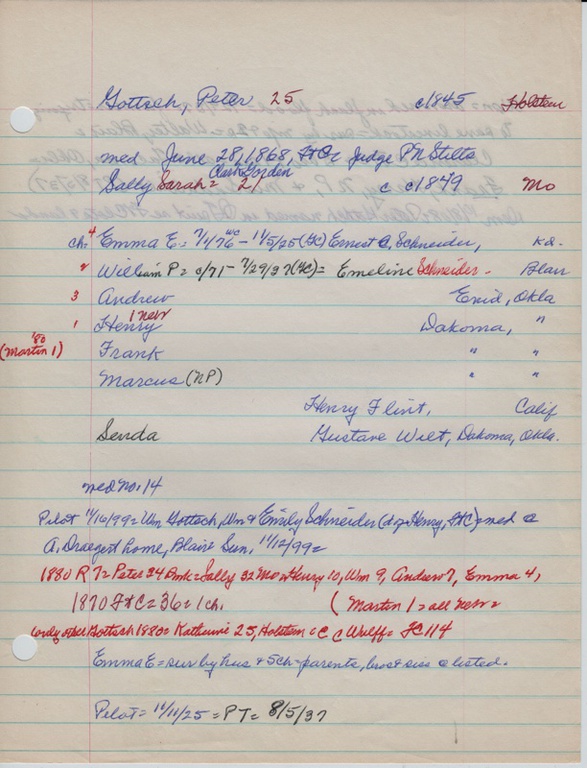 Gottsch, Peter 25 c1845 Holstein
med June 28, 1868, Ft C = Judge P N Stilts
Clark Gorden
Sally Sarah = 21 c c1849 Mo
ch = 4 Emma E = 7/4/76 WC - 11/5/25 (FC) Ernest C. Schneider,
2 William P = 0/71 - 7/29/37 (FC) = Emeline Schneider - Blair
3 Andrew Enid, Okla
1 new
1 Henry Dakoma, "
'80
(Martin 1) Frank " "
Marcus (NP) " "
Henry Flint, Calif
Senda Gustave Wilt, Dakoma, Okla.
med no. 14
Pilot 11/16/99 = Wm Gottsch, Wm & Emily Schneider (d of Henry, Ft C) = med @
A. Draegert home, Blair Sun, 11/12/99 =
1880 R 7 = Peter 34 = Sally 32 Mo = Henry 10, Wm 9, Andrew 7, Emma 4,
1870 Ft C = 36 = 1 ch. (Martin 1 = all new =
only other Gottsch 1880 = Katherine 25, Holstein = C C Wulff = FC 114
Emma E = sur by hus & 5 ch - parents, bros & siss @ listed.
Pilot = 11/11/25 = P T = 8/5/37